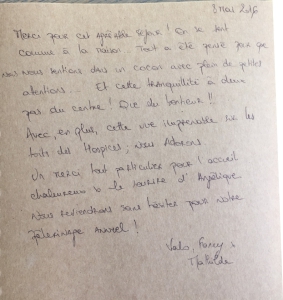 3 mai 2016
Merci pour cet agréable séjour ! On se sent
comme à la maison. Tout a été pensé pour que
nous nous sentions dans un cocon avec plein de petites
attentions... Et cette tranquillité à deux
pas du centre ! Que du bonheur !!
Avec, en plus, cette vue imprenable sur les
toits des Hospices, nous adorons.
Un merci tout particulier pour l'accueil
chaleureux & le sourire d'Angélique.
Nous reviendrons sans hésiter pour notre
pèlerinage annuel !
Valo, Fanny &
Mathilde